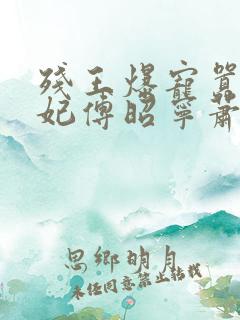 残王爆宠嚣
妃傅昭寧萧
思鄉明月
未经同意禁止转载